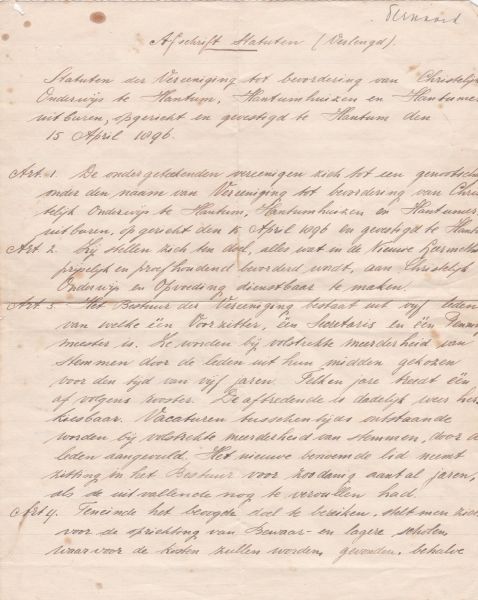 Afschrift Statuten (Verlengd).
Statuten der Vereeniging tot bevordering van Christelijk
Onderwijs te Hantum, Hantumhuizen en Hantumer
uitburen, opgericht en gevestigd te Hantum den
15 April 1896.
Art. 1. De ondergeteekenden vereenigen zich tot een genootsch
onder den naam van Vereeniging tot bevordering van Chris
telijk Onderwijs te Hantum, Hantumhuizen en Hantumer
uitburen, opgericht den 15 April 1896 en gevestigd te Hant
Art 2. Zij stellen zich ten doel, alles wat in de Nieuwe
en proefhoudend bevonden wordt, aan Christelijk
Onderwijs en Opvoeding dienstbaar te maken.
Art. 3. Het Bestuur der Vereeniging bestaat uit vijf leden
van welke één Voorzitter, één Secretaris en één Penning
meester is. Ze worden bij volstrekte meerderheid van
stemmen door de leden uit hun midden gekozen
voor den tijd van vijf jaren. Telken jare treedt één
af volgens rooster. De aftredende is dadelijk weer her
kiesbaar. Vacaturen tusschentijds ontstaande
worden bij volstrekte meerderheid van stemmen, door de
leden aangevuld. Het nieuwe benoemde lid neemt
zitting in het Bestuur voor zoodanig aantal jaren,
als de uitvallende nog te vervullen had.
Art 4. Teneinde het beoogde doel te bereiken, stelt men zich
voor de oprichting van Bewaar- en lagere scholen,
waarvoor de kosten zullen worden gevonden, behalve